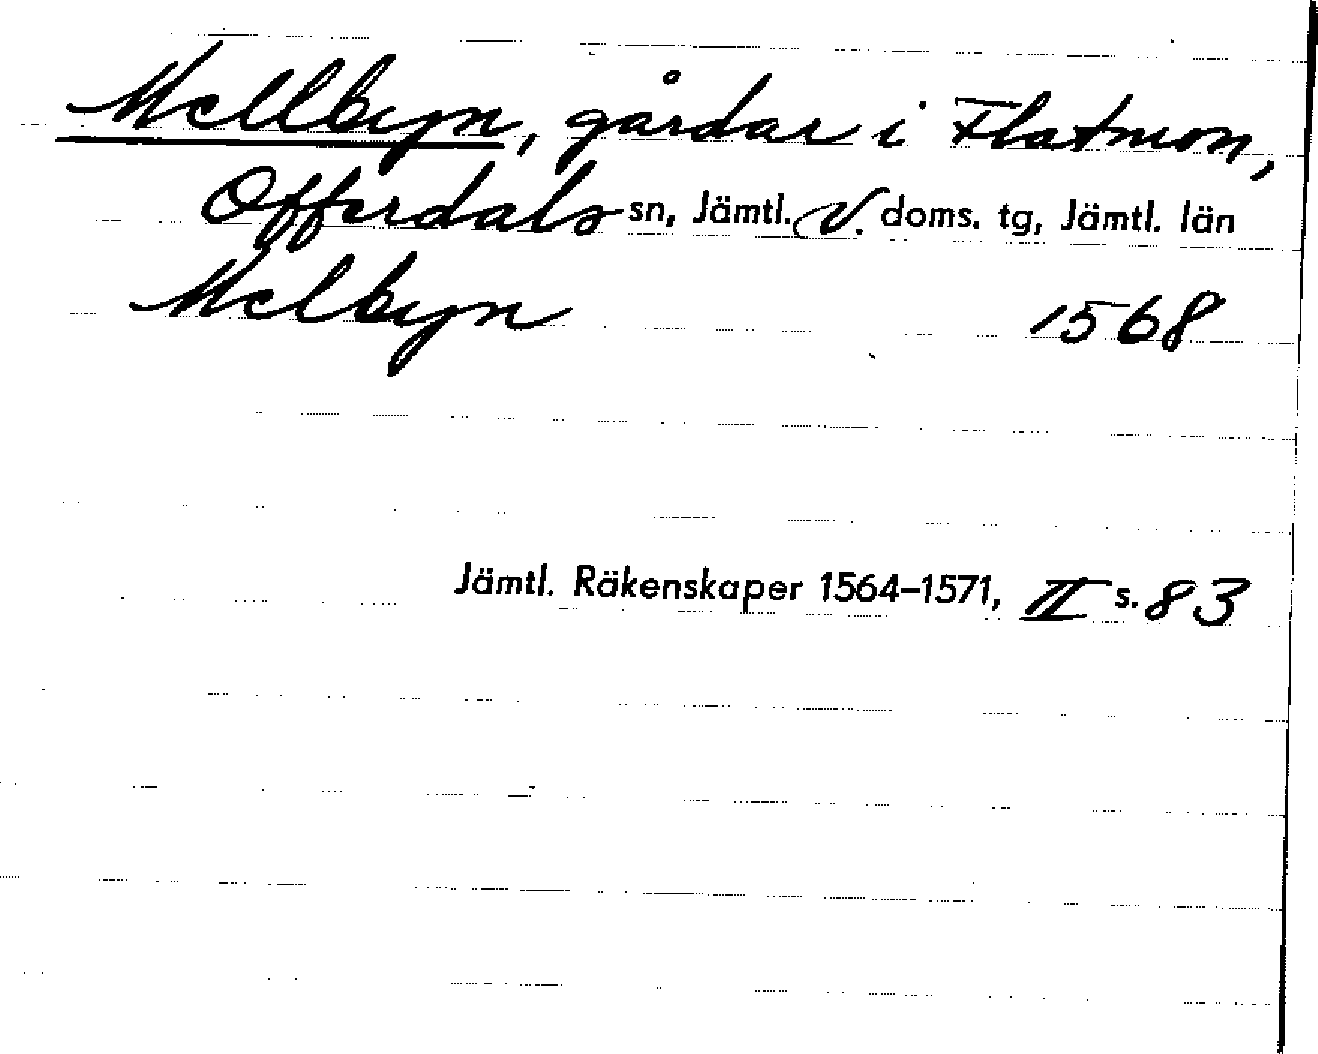 Mellbyn, gårdar i Flatmon,
Offerdals sn, Jämtl. V. doms. tg, Jämtl. län
Melbyn 1568
Jämtl. Räkenskaper 1564–1571, II s. 83